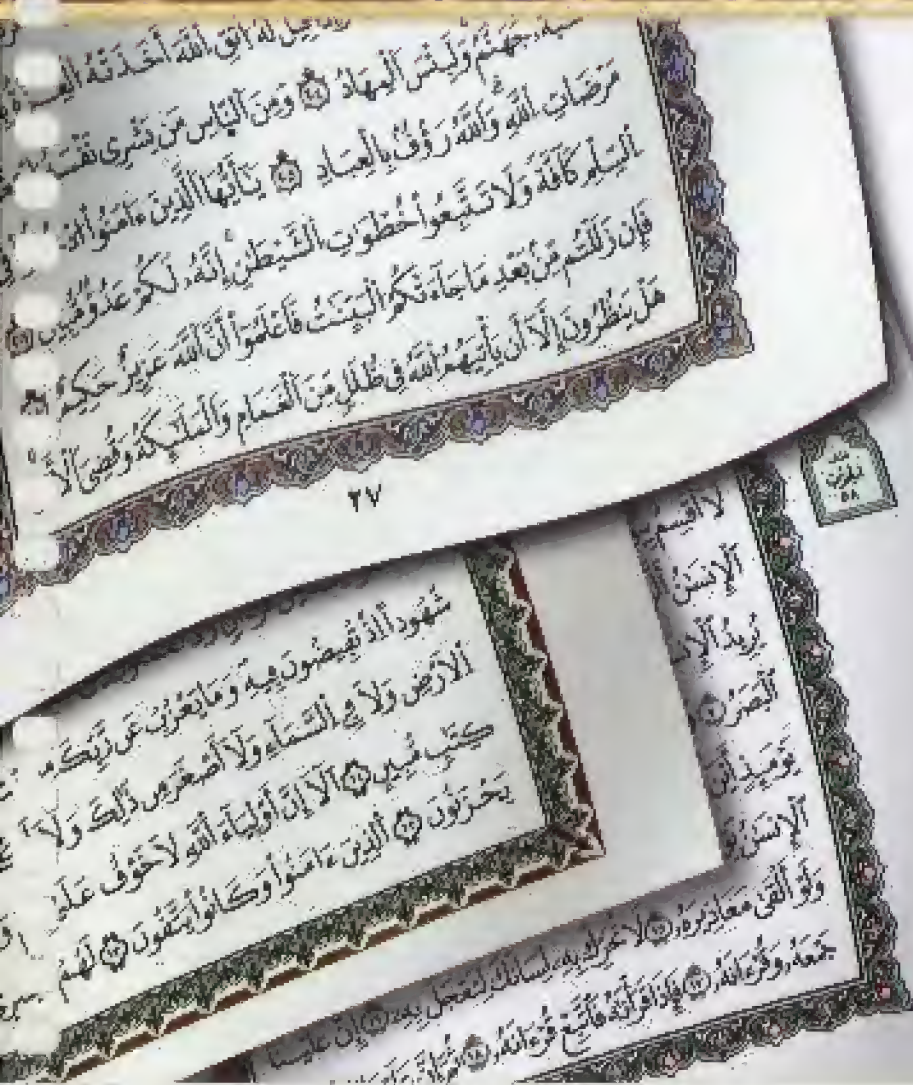 قِيلَ لَهُ ٱتَّقِ ٱللَّهَ أَخَذَتْهُ
جَهَنَّمُ وَلَبِئْسَ ٱلْمِهَادُ ٢٠٦ وَمِنَ ٱلنَّاسِ مَن يَشْرِى
مَرْضَاتِ ٱللَّهِ وَٱللَّهُ رَءُوفٌۢ بِٱلْعِبَادِ ٢٠٧ يَٰٓأَيُّهَا ٱلَّذِينَ ءَامَنُوا۟
ٱلسِّلْمِ كَآفَّةً وَلَا تَتَّبِعُوا۟ خُطُوَٰتِ ٱلشَّيْطَٰنِ إِنَّهُۥ لَكُمْ عَدُوٌّ مُّبِينٌ
فَإِن زَلَلْتُم مِّنۢ بَعْدِ مَا جَآءَتْكُمُ ٱلْبَيِّنَٰتُ فَٱعْلَمُوٓا۟ أَنَّ ٱللَّهَ عَزِيزٌ حَكِيمٌ
هَلْ يَنظُرُونَ إِلَّآ أَن يَأْتِيَهُمُ ٱللَّهُ فِى ظُلَلٍ مِّنَ ٱلْغَمَامِ وَٱلْمَلَٰٓئِكَةُ وَقُضِىَ ٱلْأَ
٢٧
شُهُودًا اِذْ تُفِيضُونَ فِيهِ وَمَا يَعْزُبُ عَن رَّبِّكَ
اَ۬لَارْضِ وَلَا فِے اِ۬لسَّمَآءِ وَلَآ أَصْغَرَ مِن ذَٰلِكَ وَلَآ
كِتَٰبٍ مُّبِينٍ أَلَآ إِنَّ أَوْلِيَآءَ اَ۬للَّهِ لَا خَوْفٌ
يَحْزَنُونَ اَ۬لذِينَ ءَامَنُواْ وَكَانُواْ يَتَّقُونَ لَهُمُ
الحزب
٥٨
لَآ أُقْسِمُ
ٱلْإِنسَٰنُ
يُرِيدُ ٱلْإِنـ
ٱلْبَصَرُ ٧
يَوْمَئِذٍ أَيْنَ
ٱلْإِنسَٰنُ
وَلَوْ أَلْقَىٰ مَعَاذِيرَهُۥ ١٥ لَا تُحَرِّكْ بِهِۦ لِسَانَكَ لِتَعْجَلَ بِهِۦٓ ١٦ إِنَّ عَلَيْنَا
جَمْعَهُۥ وَقُرْءَانَهُۥ ١٧ فَإِذَا قَرَأْنَٰهُ فَٱتَّبِعْ قُرْءَانَهُۥ ١٨ ثُمَّ إِنَّ